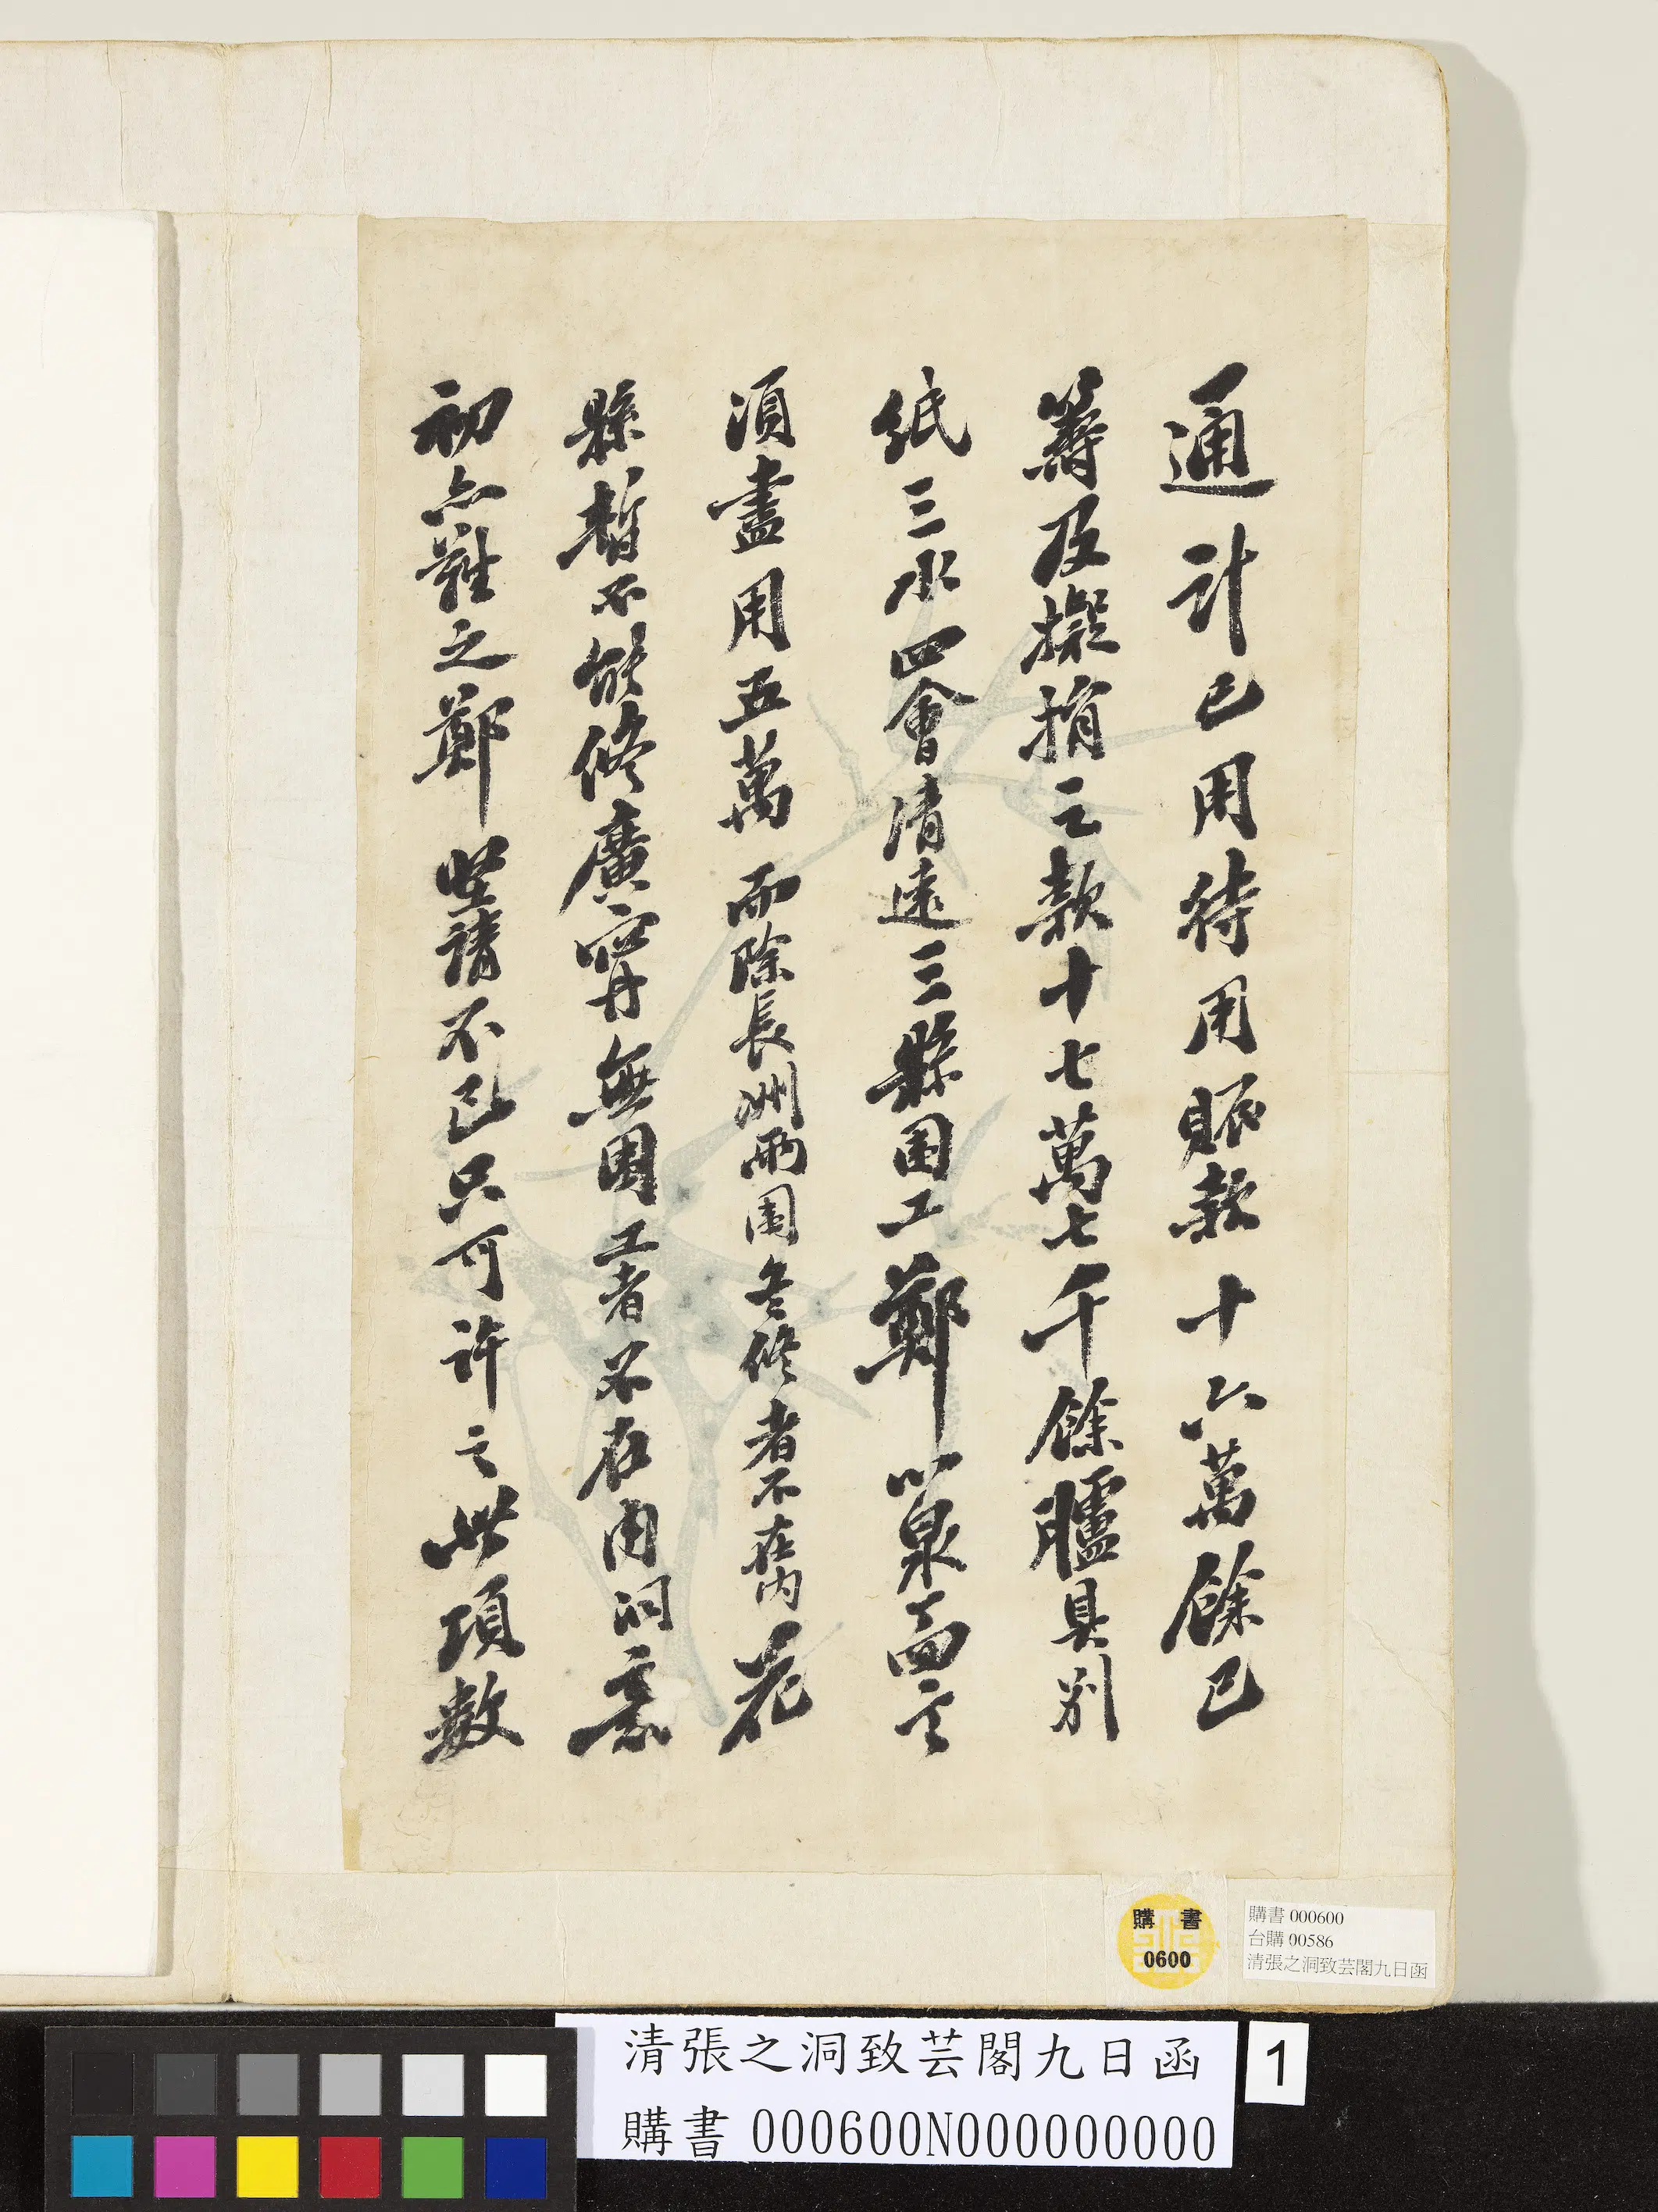 通計已用待用賑款十六萬餘已
籌及擬捐之款十七萬七千餘臚具別
紙三水四會清遠三縣圍工鄭以泉面言
須盡用五萬而除長洲兩圍冬修者不在內花
縣暫不能修廣寧無圍工者不在內洞意
初亦難之鄭堅請不已只可許之此項數
購書
0600
購書 000600
台購 00586
清張之洞致芸閣九日函
清張之洞致芸閣九日函
購書 000600N000000000
1